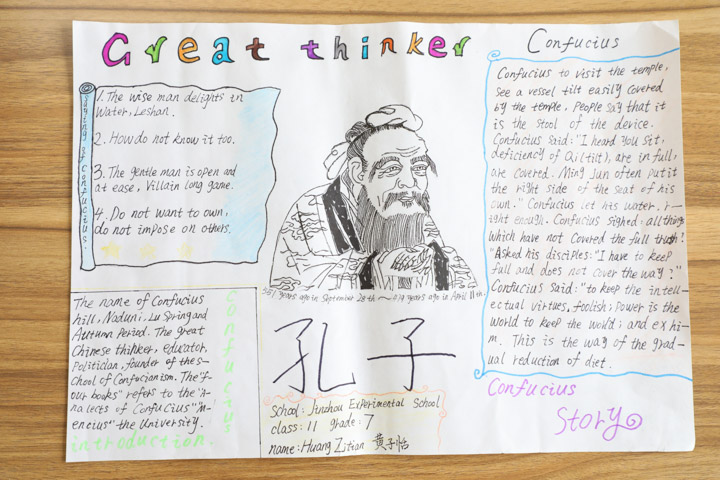 Great thinker
Sayings of Confucius
1. The wise man delights in
Water, Leshan.
2. How do not know it too.
3. The gentle man is open and
at ease, Villain long game.
4. Do not want to own,
do not impose on others.
551 years ago in September 28th ~ 479 years ago in April 11th.
孔子
The name of Confucius
hill, Naduni. Lu Spring and
Autumn Period. The great
Chinese thinker, educator,
Politician, founder of the s-
chool of Confucianism. The "f-
our books" refers to the "A-
nalects of Confucius" "M-
encius" the University.
introduction.
Confucius
School: Jinzhou Experimental School
class: 11 grade: 7
name: Huang Zitian 黄子怡
Confucius
Confucius to visit the temple,
see a vessel tilt easily covered
by the temple, People say that it
is the stool of the device.
Confucius said: "I heard you sit,
deficiency of Qi(tilt), are in full,
are covered. Ming Jun often put it
the right side of the seat of his
own." Confucius let his water. r-
ight enough. Confucius sighed: all things
which have not covered the full truth!
"Asked his disciples: "I have to keep
full and does not cover the way?"
Confucius Said: "to keep the intell-
ectual virtues, foolish; power is the
world to keep the world; and ex hi-
m. This is the way of the grad-
ual reduction of diet.
Confucius
Story